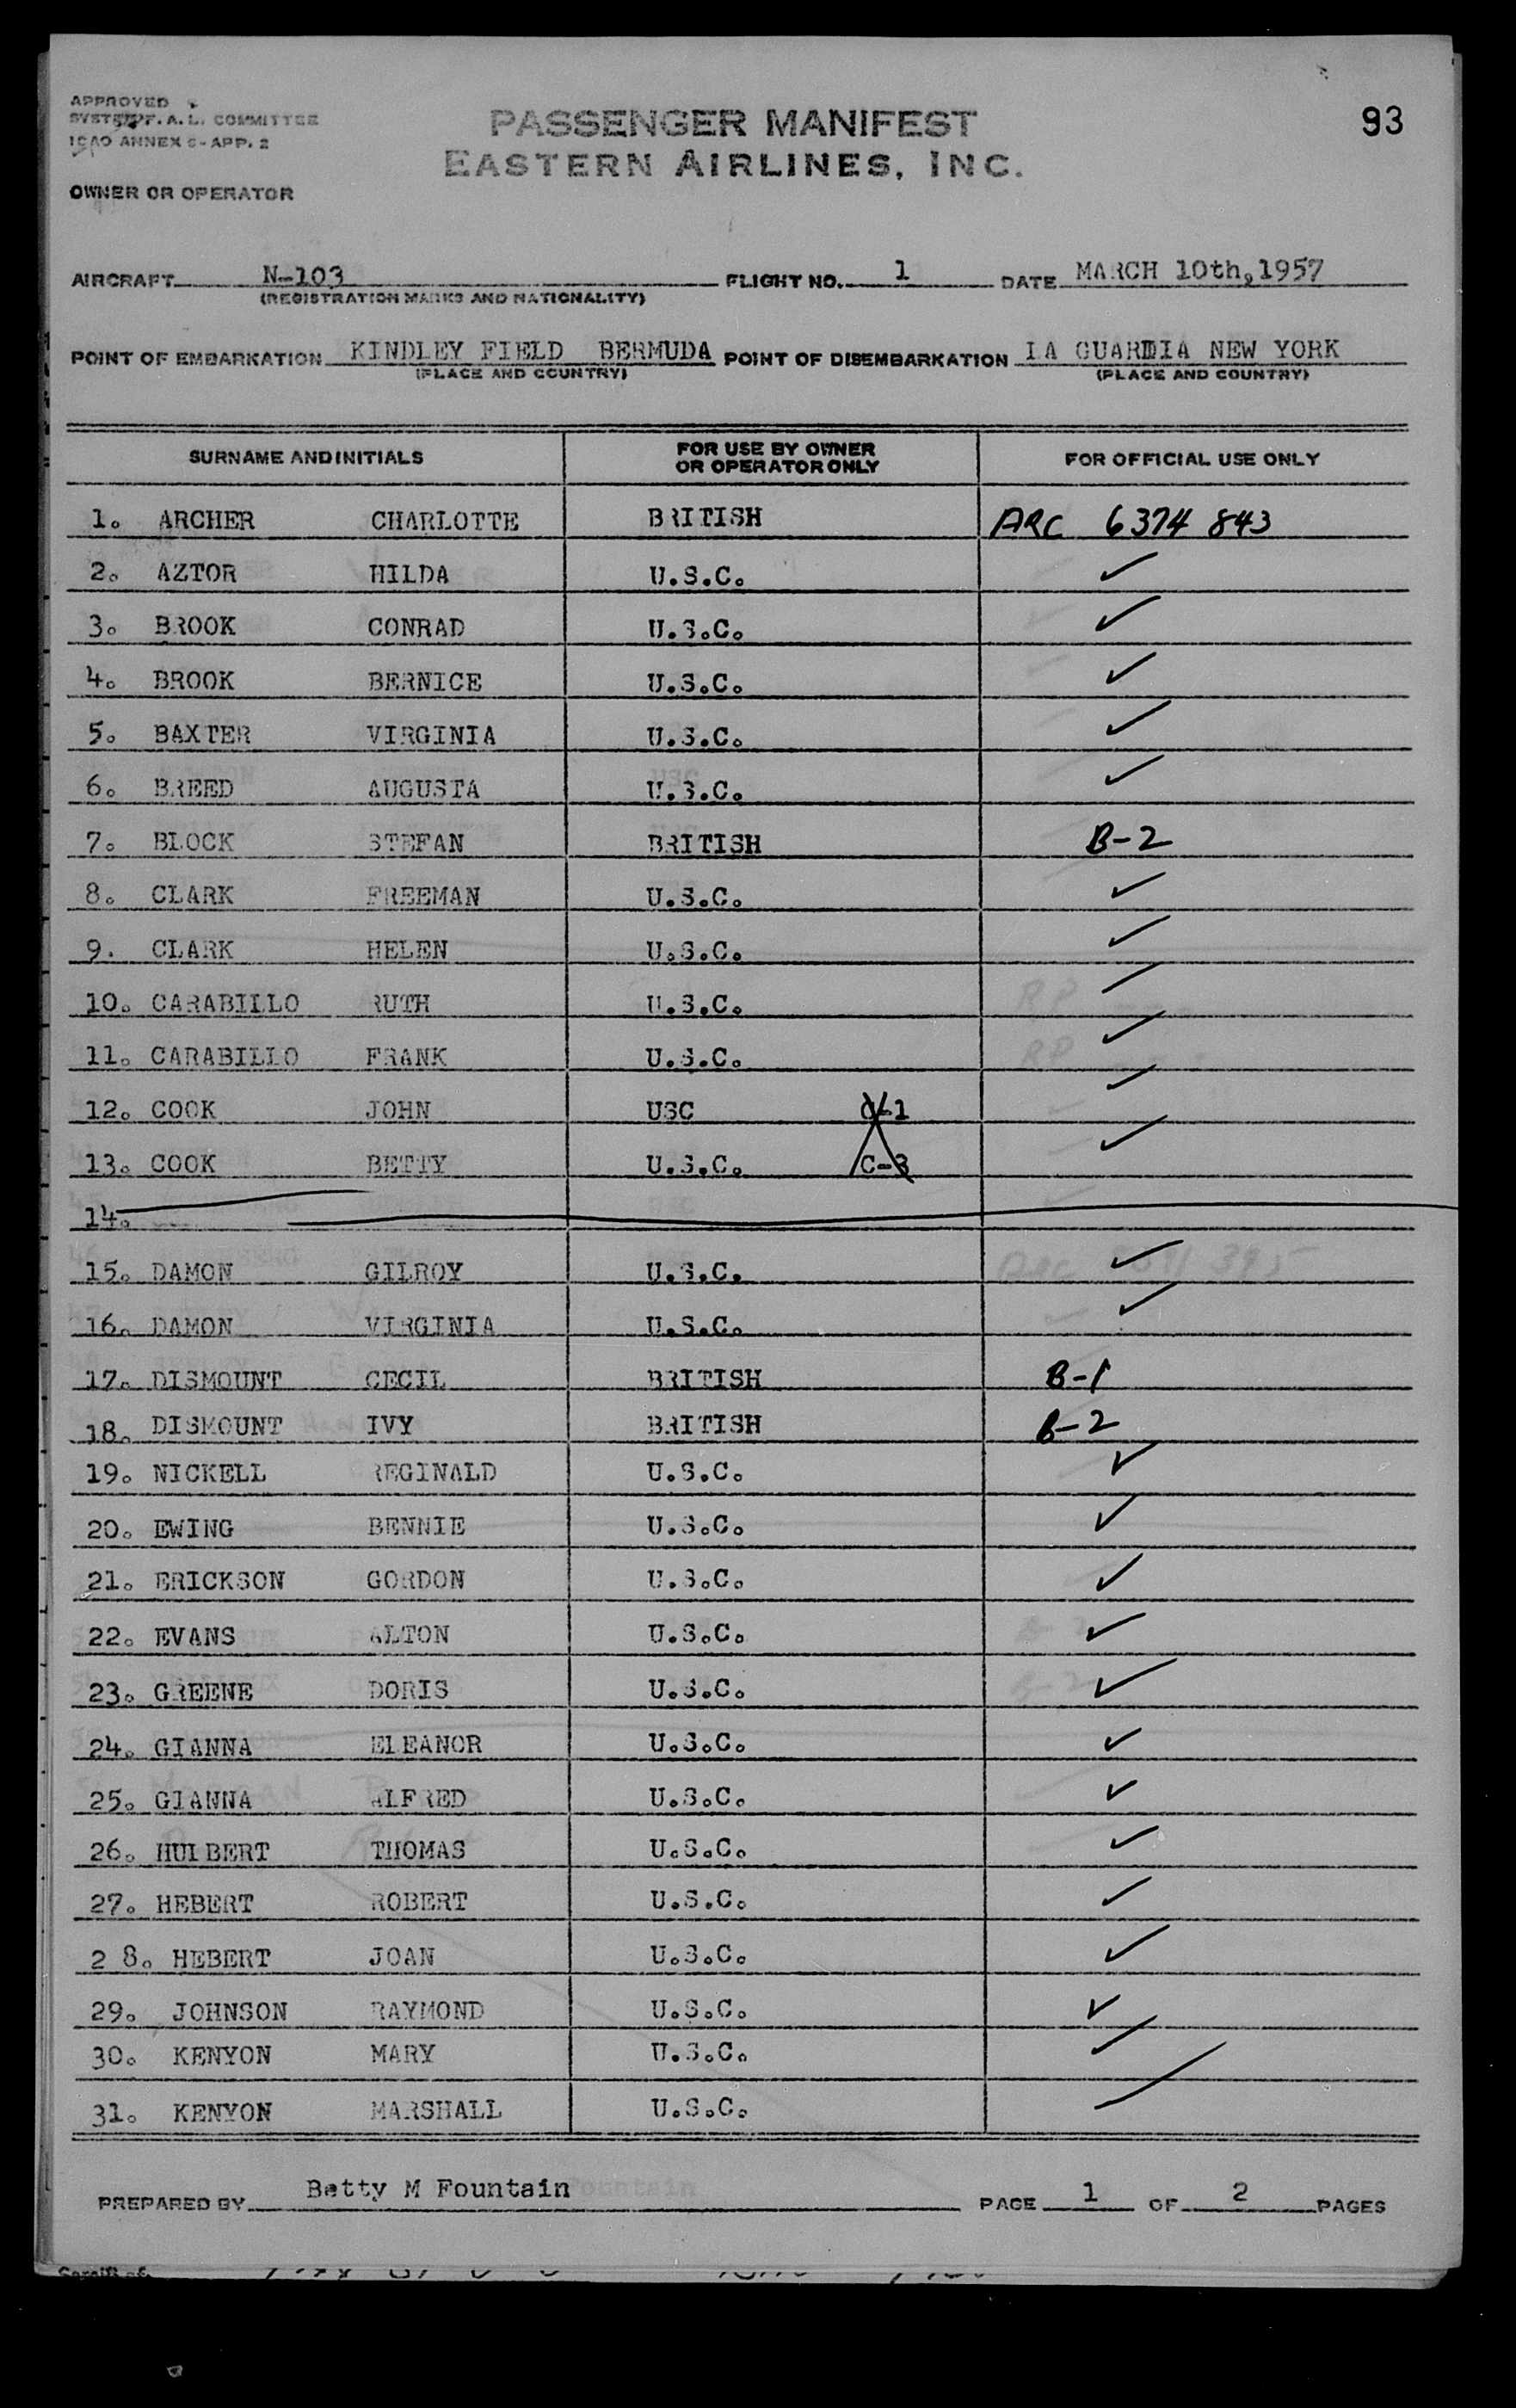 APPROVED
F. A. L. COMMITTEE
ICAO ANNEX 9-APP. 2
93
PASSENGER MANIFEST
EASTERN AIRLINES, INC.
OWNER OR OPERATOR
AIRCRAFT N-103 FLIGHT NO. 1 DATE MARCH 10th,1957
(REGISTRATION MARKS AND NATIONALITY)
POINT OF EMBARKATION KINDLEY FIELD BERMUDA POINT OF DISEMBARKATION LA GUARDIA NEW YORK
(PLACE AND COUNTRY) (PLACE AND COUNTRY)
SURNAME AND INITIALS FOR USE BY OWNER OR OPERATOR ONLY FOR OFFICIAL USE ONLY
1. ARCHER CHARLOTTE BRITISH ARC 6374 843
2. AZTOR HILDA U.S.C. ✓
3. BROOK CONRAD U.S.C. ✓
4. BROOK BERNICE U.S.C. ✓
5. BAXTER VIRGINIA U.S.C. ✓
6. BREED AUGUSTA U.S.C. ✓
7. BLOCK STEFAN BRITISH B-2
8. CLARK FREEMAN U.S.C. ✓
9. CLARK HELEN U.S.C. ✓
10. CARABILLO RUTH U.S.C. ✓
11. CARABILLO FRANK U.S.C. ✓
12. COOK JOHN USC C-1 ✓
13. COOK BETTY U.S.C. C-3 ✓
14.
15. DAMON GILROY U.S.C. ✓
16. DAMON VIRGINIA U.S.C. ✓
17. DISMOUNT CECIL BRITISH B-1
18. DISMOUNT IVY BRITISH B-2
19. NICKELL REGINALD U.S.C. ✓
20. EWING BENNIE U.S.C. ✓
21. ERICKSON GORDON U.S.C. ✓
22. EVANS ALTON U.S.C. ✓
23. GREENE DORIS U.S.C. ✓
24. GIANNA ELEANOR U.S.C. ✓
25. GIANNA ALFRED U.S.C. ✓
26. HULBERT THOMAS U.S.C. ✓
27. HEBERT ROBERT U.S.C. ✓
2 8. HEBERT JOAN U.S.C. ✓
29. JOHNSON RAYMOND U.S.C. ✓
30. KENYON MARY U.S.C. ✓
31. KENYON MARSHALL U.S.C. ✓
PREPARED BY Betty M Fountain PAGE 1 OF 2 PAGES